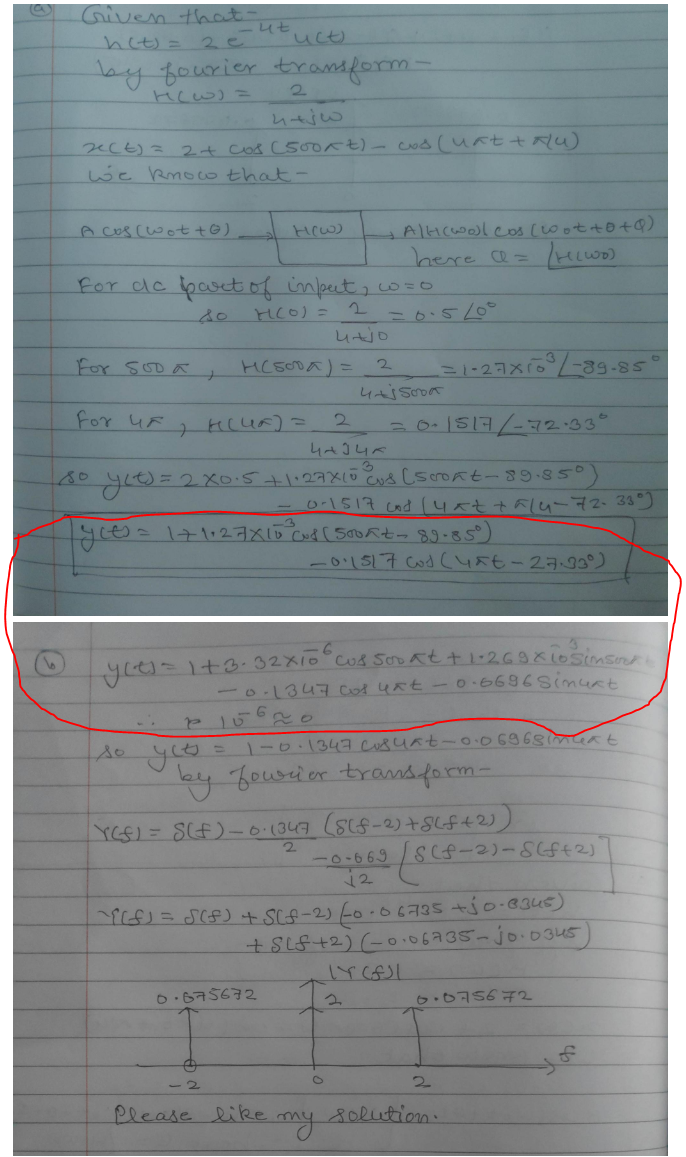 (a) Given that-
h(t) = 2e^-4t u(t)
by fourier transform-
H(ω) = 2/(4+jω)
x(t) = 2 + cos(500πt) - cos(4πt + π/4)
We know that-
A cos(ω0t+θ) → H(ω) → A|H(ω0)| cos(ω0t+θ+Q)
here Q = ∠H(ω0)
For dc part of input, ω=0
so H(0) = 2/(4+j0) = 0.5∠0°
For 500π, H(500π) = 2/(4+j500π) = 1.27×10^-3∠-89.85°
For 4π, H(4π) = 2/(4+j4π) = 0.1517∠-72.33°
so y(t) = 2×0.5 + 1.27×10^-3 cos(500πt - 89.85°)
- 0.1517 cos(4πt + π/4 - 72.33°)
y(t) = 1+1.27×10^-3 cos(500πt - 89.85°)
-0.1517 cos(4πt - 27.33°)
(b) y(t) = 1+3.32×10^-6 cos500πt + 1.269×10^-3 sin500πt
- 0.1347 cos4πt - 0.0696 sin4πt
∴ 10^-6 ≈ 0
so y(t) = 1-0.1347 cos4πt - 0.0696 sin4πt
by fourier transform-
Y(f) = δ(f) - 0.1347/2 (δ(f-2)+δ(f+2))
-0.669/j2 [δ(f-2) - δ(f+2)]
Y(f) = δ(f) + δ(f-2) (-0.06735 + j0.0345)
+ δ(f+2) (-0.06735 - j0.0345)
|Y(f)|
0.075672 2 0.075672
f
-2 0 2
Please like my solution.